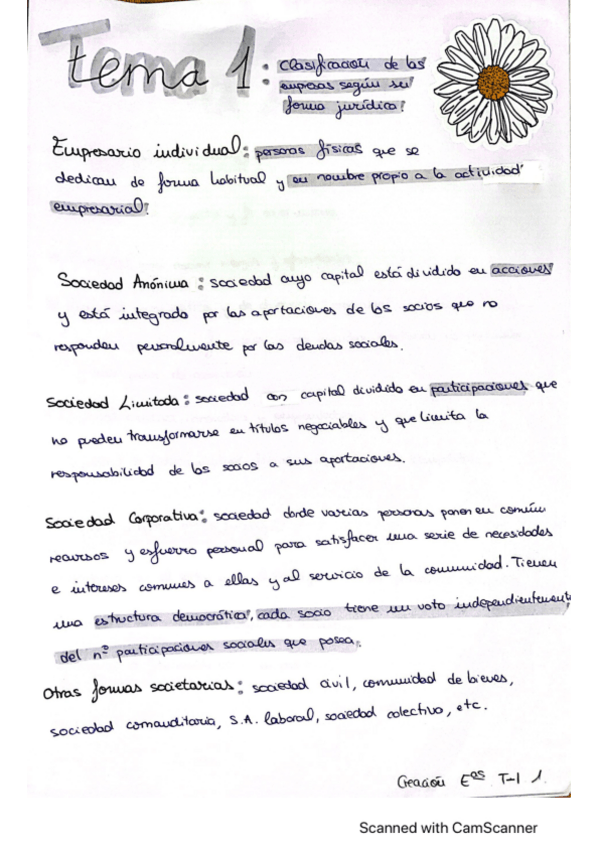 Tema 1: Clasificación de las
empresas según su
forma jurídica:
Empresario individual: personas físicas que se
dedican de forma habitual y en nombre propio a la actividad
empresarial.
Sociedad Anónima: sociedad cuyo capital está dividido en acciones
y está integrado por las aportaciones de los socios que no
responden personalmente por las deudas sociales.
Sociedad Limitada: sociedad con capital dividido en participaciones que
no pueden transformarse en títulos negociables y que limita la
responsabilidad de los socios a sus aportaciones.
Sociedad Corporativa: sociedad donde varias personas ponen en común
recursos y esfuerzo personal para satisfacer una serie de necesidades
e intereses comunes a ellas y al servicio de la comunidad. Tienen
una estructura democrática, cada socio tiene un voto independientemente
del nº participaciones sociales que posea.
Otras formas societarias: sociedad civil, comunidad de bienes,
sociedad comanditaria, S.A. laboral, sociedad colectiva, etc.
Creación Eas T-1 1
Scanned with CamScanner